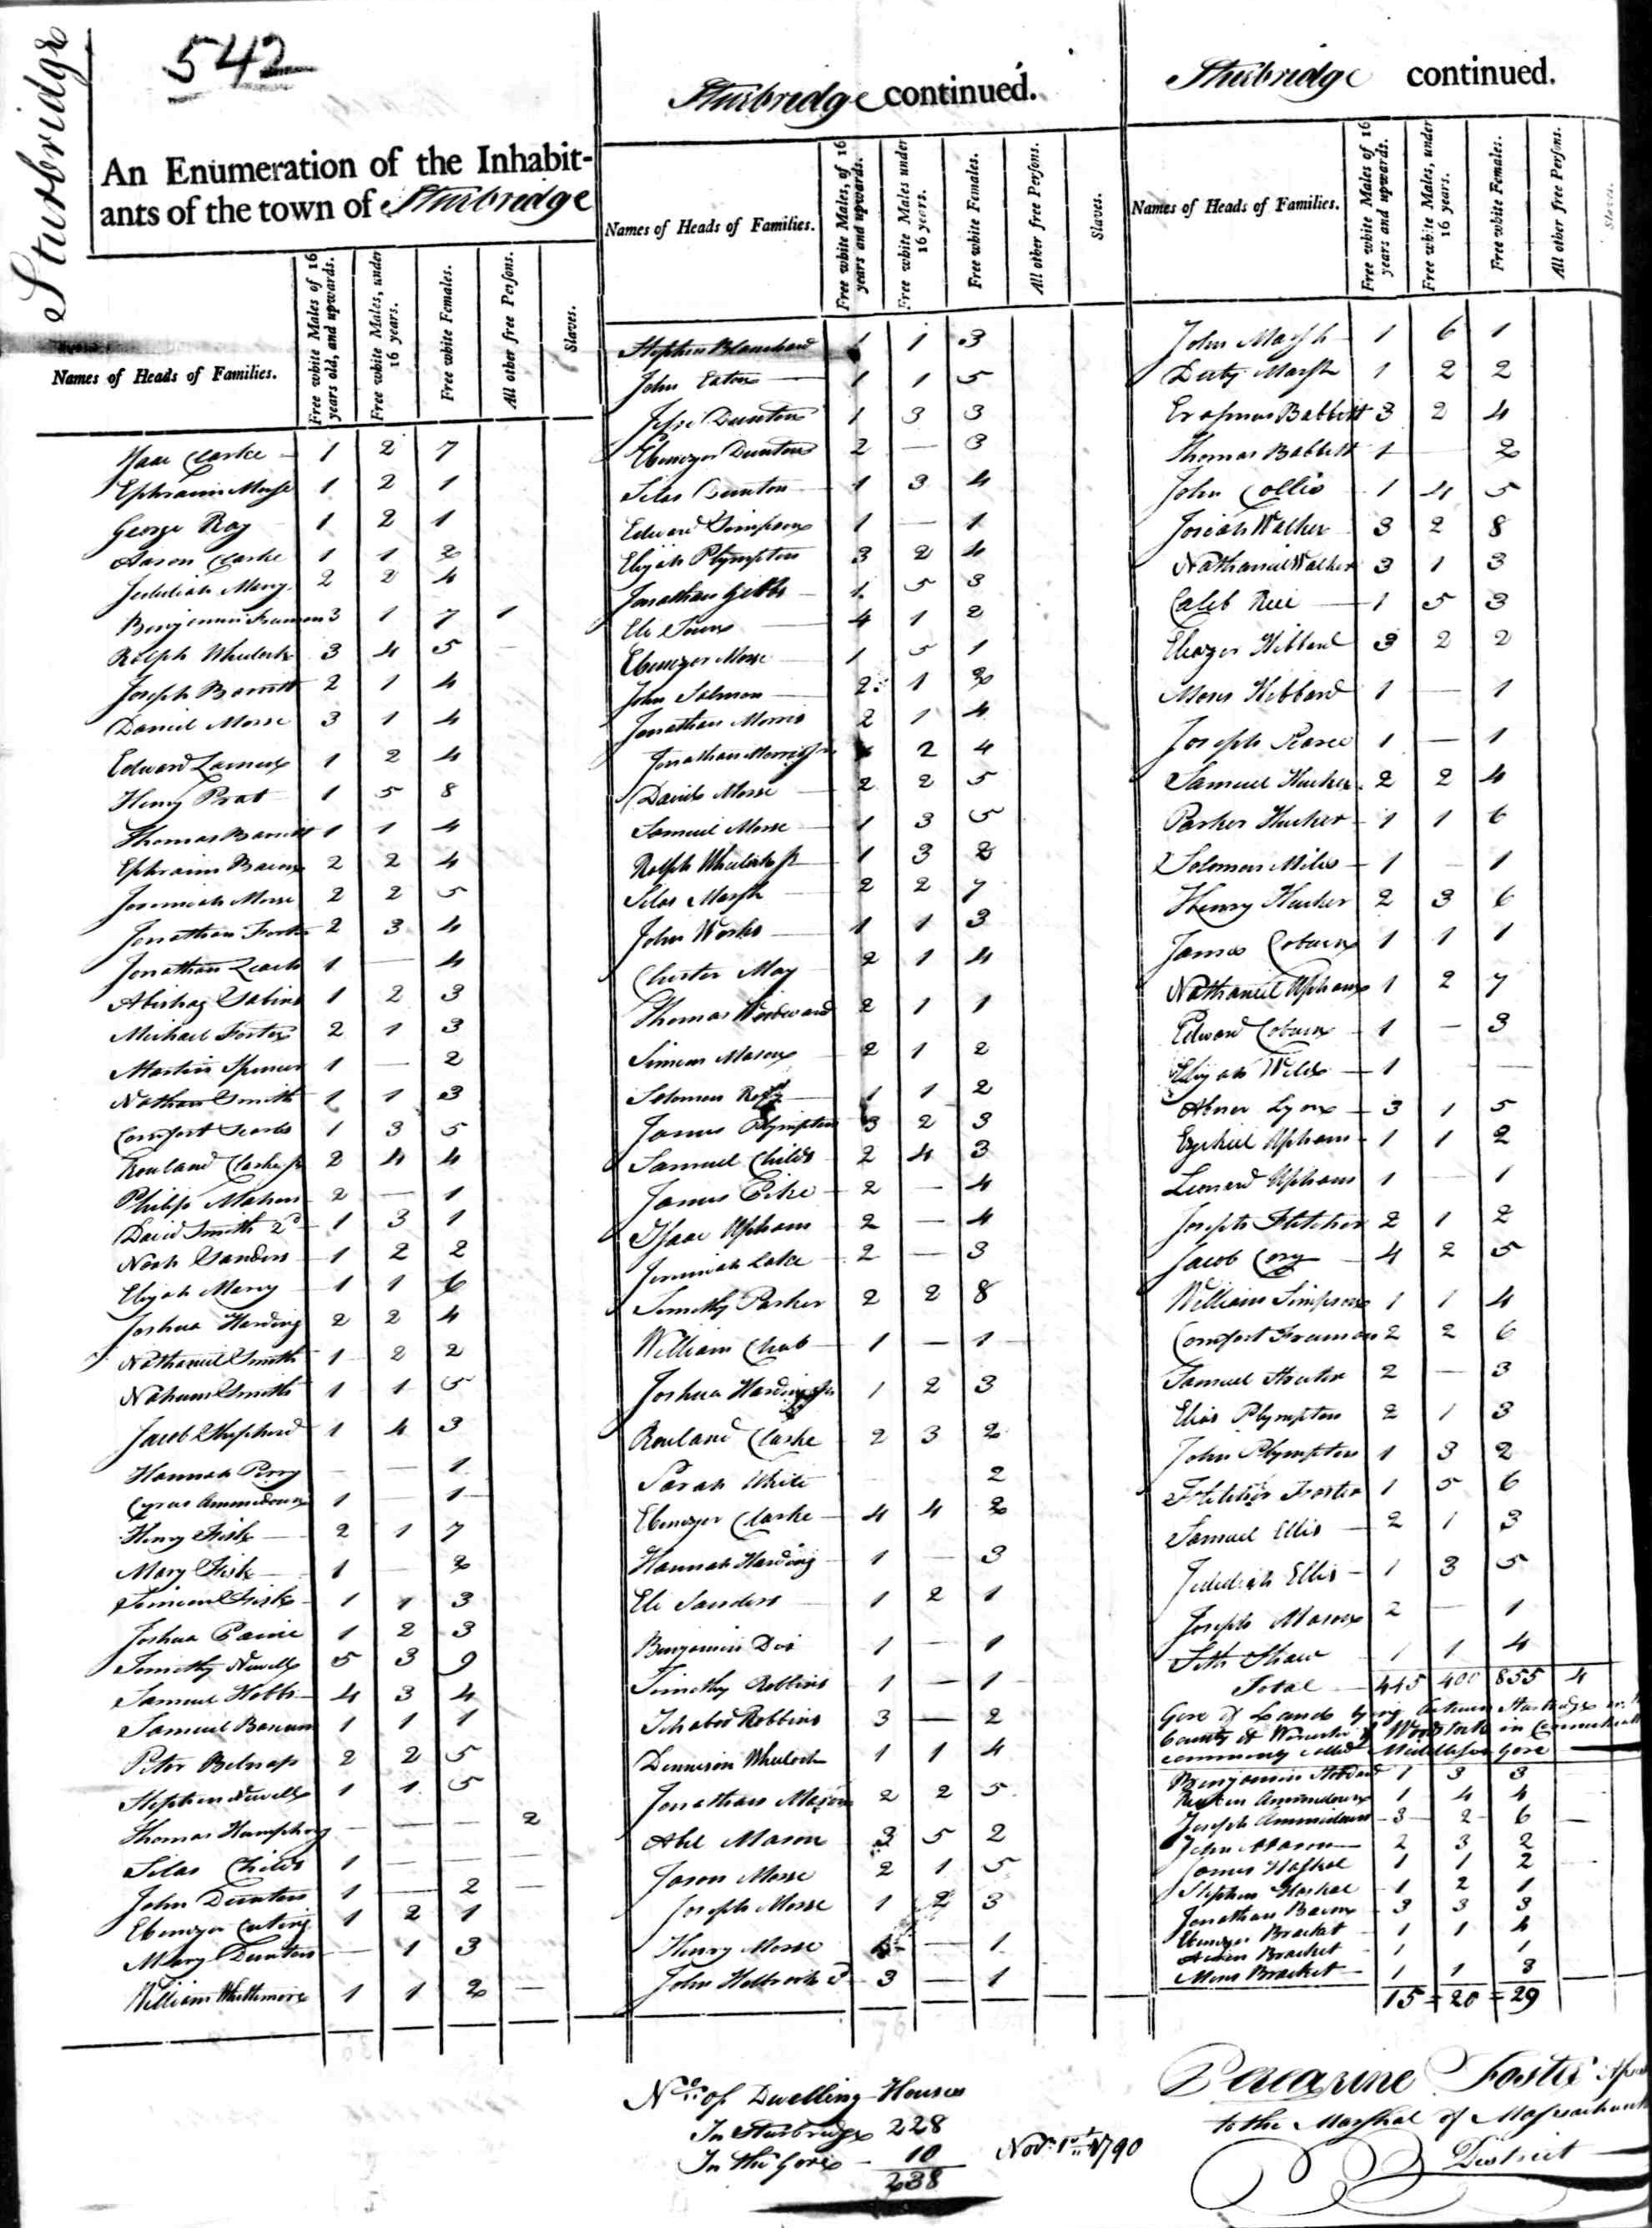 Sturbridge
542
An Enumeration of the Inhabit-
ants of the town of Sturbridge
Names of Heads of Families.
Free white Males of 16 years old, and upwards.
Free white Males, under 16 years.
Free white Females.
All other free Persons.
Slaves.
Isaac Clarke 1 2 7
Ephraim Morse 1 2 1
George Ray 1 2 1
Aaron Clarke 1 1 2
Jedediah Marcy 2 2 4
Benjamin Freeman 3 1 7 1
Ralph Wheelock 3 4 5 —
Joseph Barrett 2 1 4
Daniel Morse 3 1 4
Edward 1 2 4
Henry Prat 1 5 8
Thomas Barrett 1 1 4
Ephraim Bacon 2 2 4
Jeremiah Morse 2 2 5
Jonathan 2 3 4
Jonathan Leach 1 — 4
Abishag Sabins 1 2 3
Michael Foster 2 1 3
Martin Spencer 1 — 2
Nathan Smith 1 1 3
Comfort 1 3 5
Rouland Clarke Jr 2 4 4
Philip Mahon 2 — 1
David Smith 2d 1 3 1
Noah Sanders 1 2 2
Elijah Marcy 1 1 6
Joshua Harding 2 2 4
Nathaniel Smith 1 2 2
Nahum Smith 1 1 5
Jacob Shepherd 1 4 3
Hannah Perry — — 1
Cyrus Ammidown 1 — 1
Henry Fisk 2 1 7
Mary Fisk 1 — 2
Simeon Fisk 1 1 3
Joshua Paine 1 2 3
Timothy Newell 5 3 9
Samuel Hobbs 4 3 4
Samuel 1 1 1
Peter Belnap 2 2 5
Stephen Newell 1 1 5
Thomas Humphrey — — — 2
Silas Childs 1 — — —
John Dunton 1 — 2 —
Ebenezer Cuting 1 2 1
Mary Dunton — 1 3
William Whittimore 1 1 2 —
Sturbridge continued.
Names of Heads of Families.
Free white Males, of 16 years and upwards.
Free white Males under 16 years.
Free white Females.
All other free Persons.
Slaves.
Stephen Blanchard 1 1 3
John Eaton 1 1 5
Jesse Dunton 1 3 3
Ebenezer Dunton 2 — 3
Silas Dunton 1 3 4
Edward Simpson 1 — 1
Elijah Plympton 3 2 4
Jonathan Gibbs 1 5 3
Eli Town 4 1 2
Ebenezer Morse 1 5 1
John Salmon 2 1 2
Jonathan Morris 2 1 4
Jonathan Morris Jr 2 4
David Morse 2 2 5
Samuel Morse 1 3 5
Ralph Wheelock Jr 1 3 2
Silas Marsh 2 2 7
John Works 1 1 3
Chester May 2 1 4
Thomas Woodward 2 1 1
Simeon Mason 2 1 2
Solomon 1 1 2
James Plympton 3 2 3
Samuel Childs 2 4 3
James 2 — 4
Isaac Upham 2 — 4
Jeremiah Lake 2 — 3
Timothy Parker 2 2 8
William Chub 1 — 1
Joshua Harding Jr 1 2 3
Rouland Clarke 2 3 2
Sarah White 2
Ebenezer Clarke 4 4 2
Hannah Harding 1 — 3
Eli Sanders 1 2 1
Benjamin 1 — 1
Timothy Robbins 1 — 1
Ichabod Robbins 3 — 2
Dennison Wheelock 1 1 4
Jonathan Mason 2 2 5
Abel Mason 3 5 2
Jason Morse 2 1 5
Joseph Morse 1 2 3
Henry Morse — 1
John Holbrook 3 — 1
Sturbridge continued.
Names of Heads of Families.
Free white Males of 16 years and upwards.
Free white Males, under 16 years.
Free white Females.
All other free Persons.
Slaves.
John Marsh 1 6 1
Duty Marsh 1 2 2
Erasmus Babbitt 3 2 4
Thomas Babbitt 1 — 2
John Collis 1 4 5
Josiah Walker 3 2 8
Nathaniel Walker 3 1 3
Caleb Rice 1 5 3
Eleazer Hibbard 3 2 2
Moses Hibbard 1 — 1
Joseph Pearce 1 — 1
Samuel Hucker 2 2 4
Parker Hucker 1 1 6
Solomon Miles 1 — 1
Henry Hucker 2 3 6
James Coburn 1 1 1
Nathaniel Upham 1 2 7
Edward Coburn 1 — 3
Elijah Wild 1 —
Abner Lyon 3 1 5
Ezekiel Upham 1 1 2
Leonard Upham 1 — 1
Joseph Fletcher 2 1 2
Jacob Cory 4 2 5
William Simpson 1 1 4
Comfort Freeman 2 2 6
Samuel 2 — 3
Elias Plympton 2 1 3
John Plympton 1 3 2
Fletcher Foster 1 5 6
Samuel Ellis 2 1 3
Jedediah Ellis 1 3 5
Joseph Mason 2 — 1
Seth Shaw 1 1 4
Total 445 400 855 4
Gore of Land lying between Sturbridge in the
County of Worcester & Woodstock in Connecticut
commonly called Middlesex Gore
Benjamin Stoddard 1 3 3
Reuben Ammidown 1 4 4
Joseph Ammidown 3 2 6 —
John Mason 2 3 2
James Haskel 1 1 2
Stephen Haskel 1 2 1
Jonathan Bacon 3 3 3
Ebenezer Bracket 1 1 4
Bracket 1 1
Moses Bracket 1 1 3
15 = 20 = 29
No of Dwelling Houses
In Sturbridge 228
In the Gore 10
238
Novr. 1st 1790
Peregrine Foster
to the Marshal of Massachusetts
District